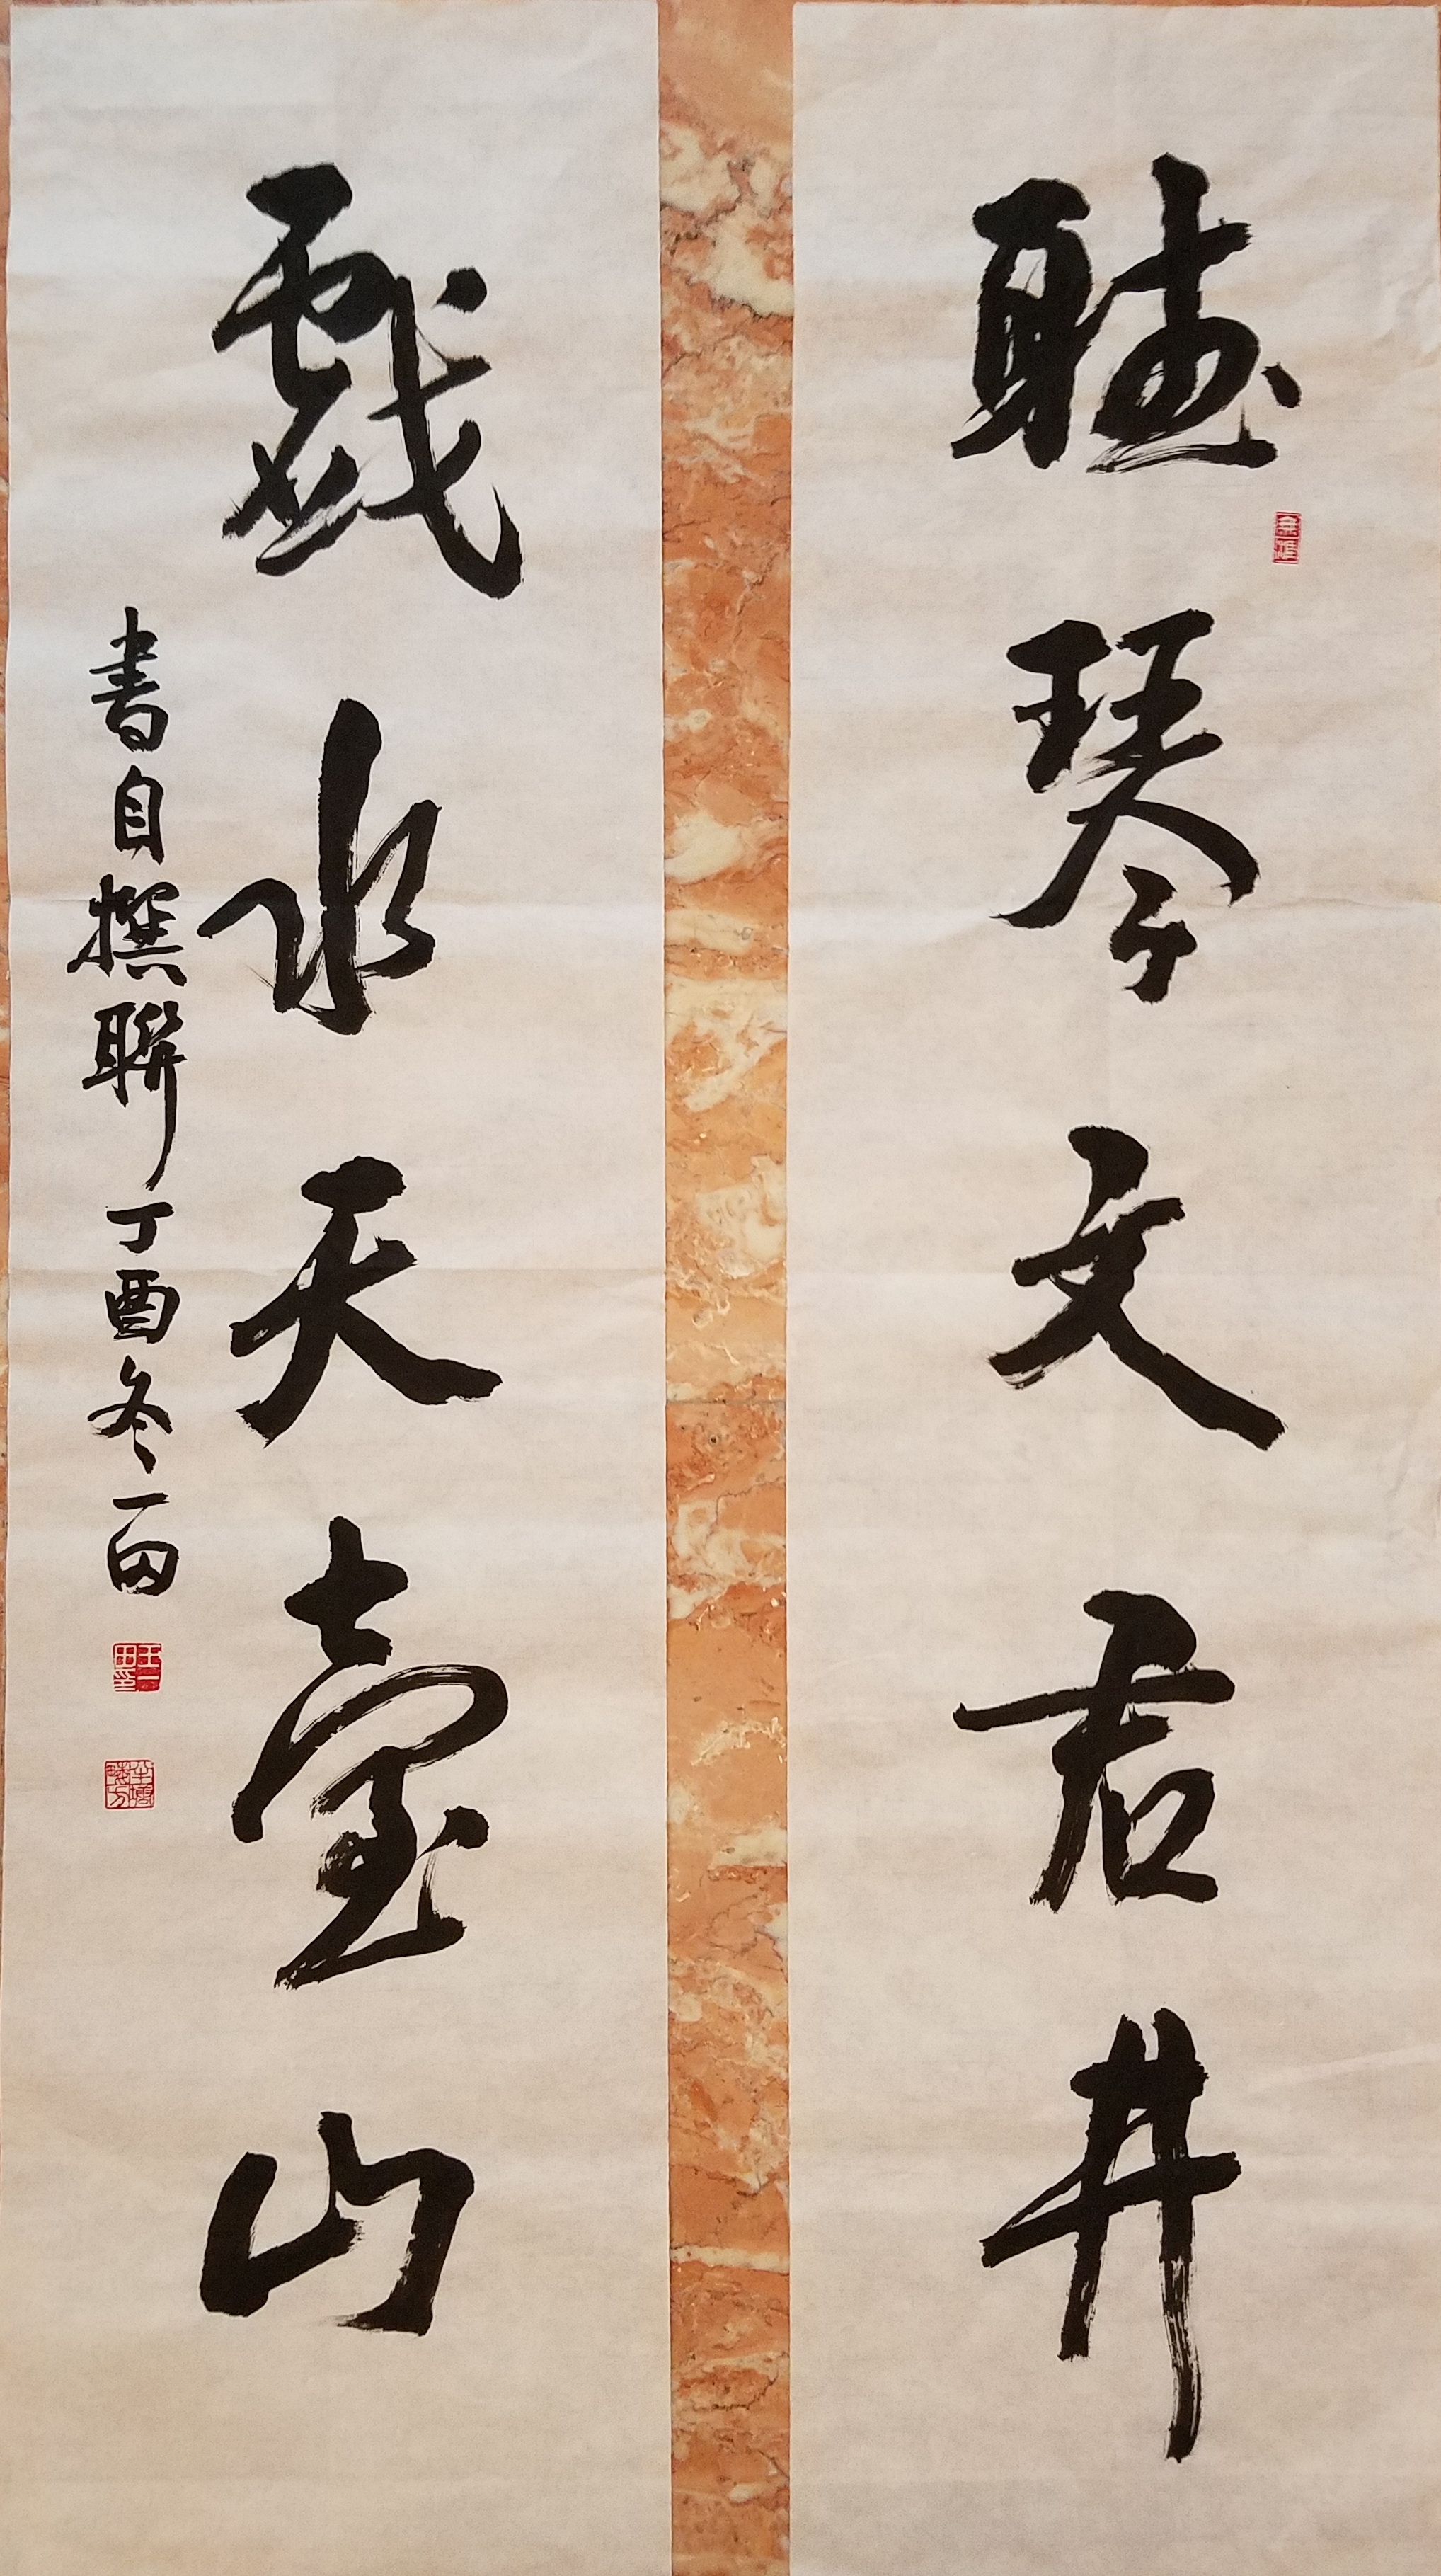 聽琴文君井
戲水天臺山
書自撰聯丁酉冬一